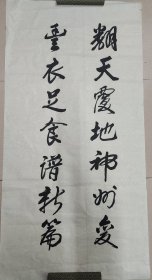 翻天覆地神州变
丰衣足食谱新篇